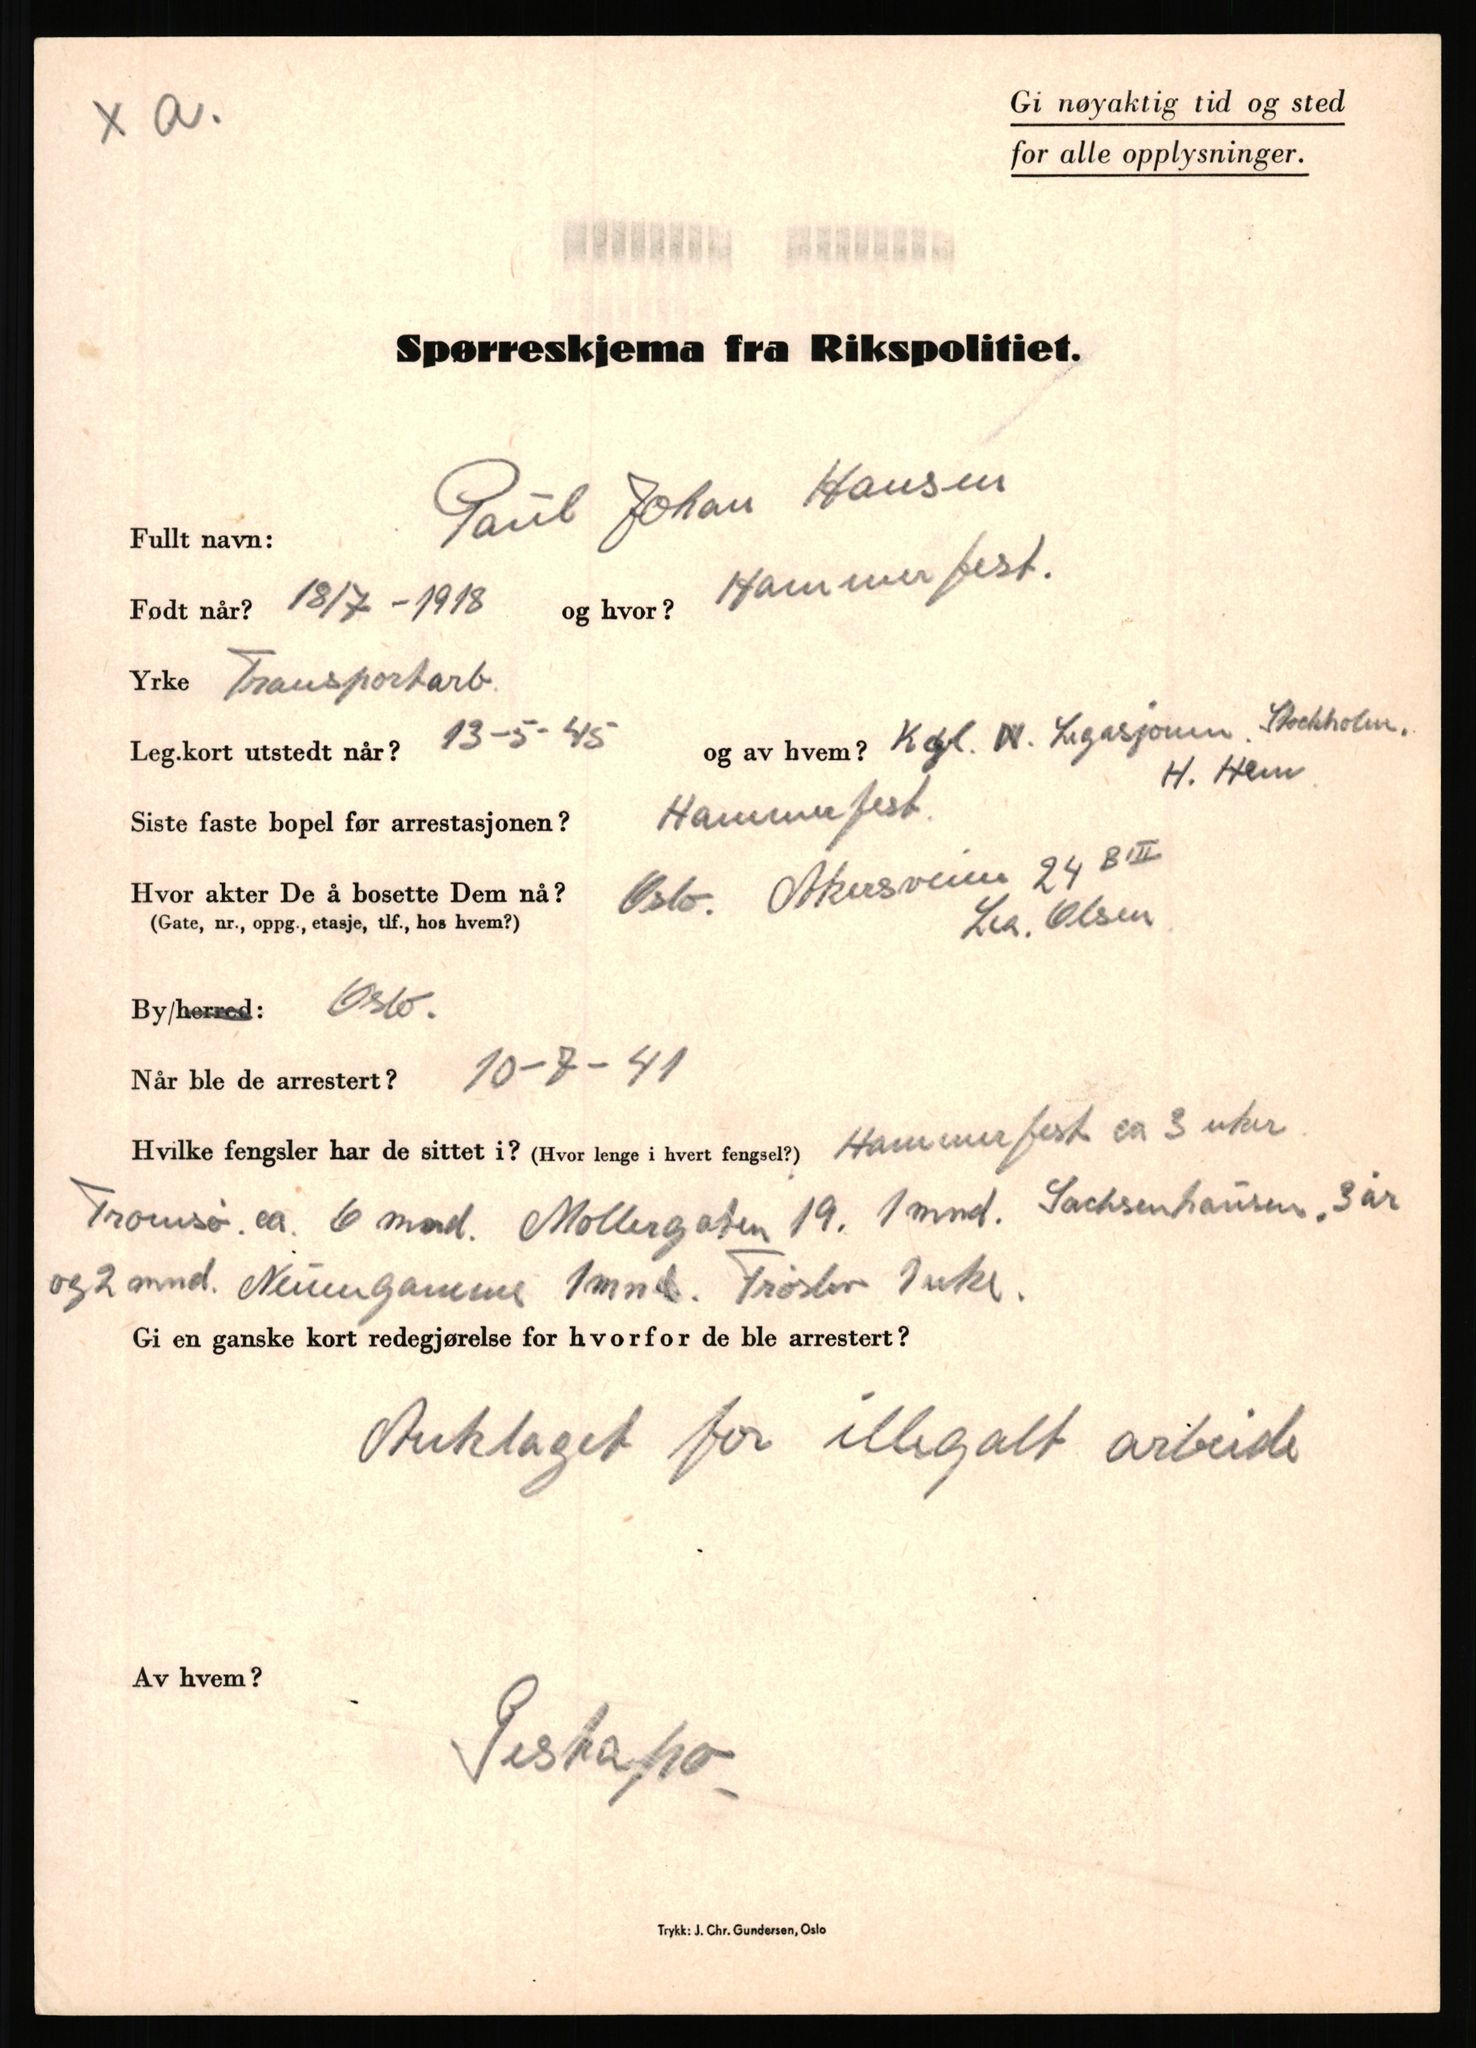 x a.
Gi nøyaktig tid og sted
for alle opplysninger.
Spørreskjema fra Rikspolitiet.
Fullt navn: Paul Johan Hansen
Født når? 18/7 - 1918 og hvor? Hammerfest.
Yrke Transportarb.
Leg.kort utstedt når? 13-5-45 og av hvem? Kgl. N. Legasjonen. Stockholm.
H. Hem
Siste faste bopel før arrestasjonen? Hammerfest.
Hvor akter De å bosette Dem nå? Oslo. Akersveien 24 B III
(Gate, nr., oppg., etasje, tlf., hos hvem?) Olsen
By/herred: Oslo.
Når ble de arrestert? 10-7-41
Hvilke fengsler har de sittet i? (Hvor lenge i hvert fengsel?) Hammerfest ca 3 uker
Tromsø. ca. 6 mnd. Mollergaten 19. 1 mnd. Sachsenhausen. 3 år
og 2 mnd. Neuengamme 1 mnd. Frøslev 1 uke.
Gi en ganske kort redegjørelse for hvorfor de ble arrestert?
Anklaget for illegalt arbeide
Av hvem?
Gestapo
Trykk: J. Chr. Gundersen, Oslo